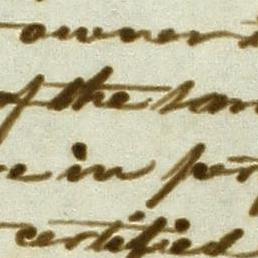 owner
of the sam
e in per
certified